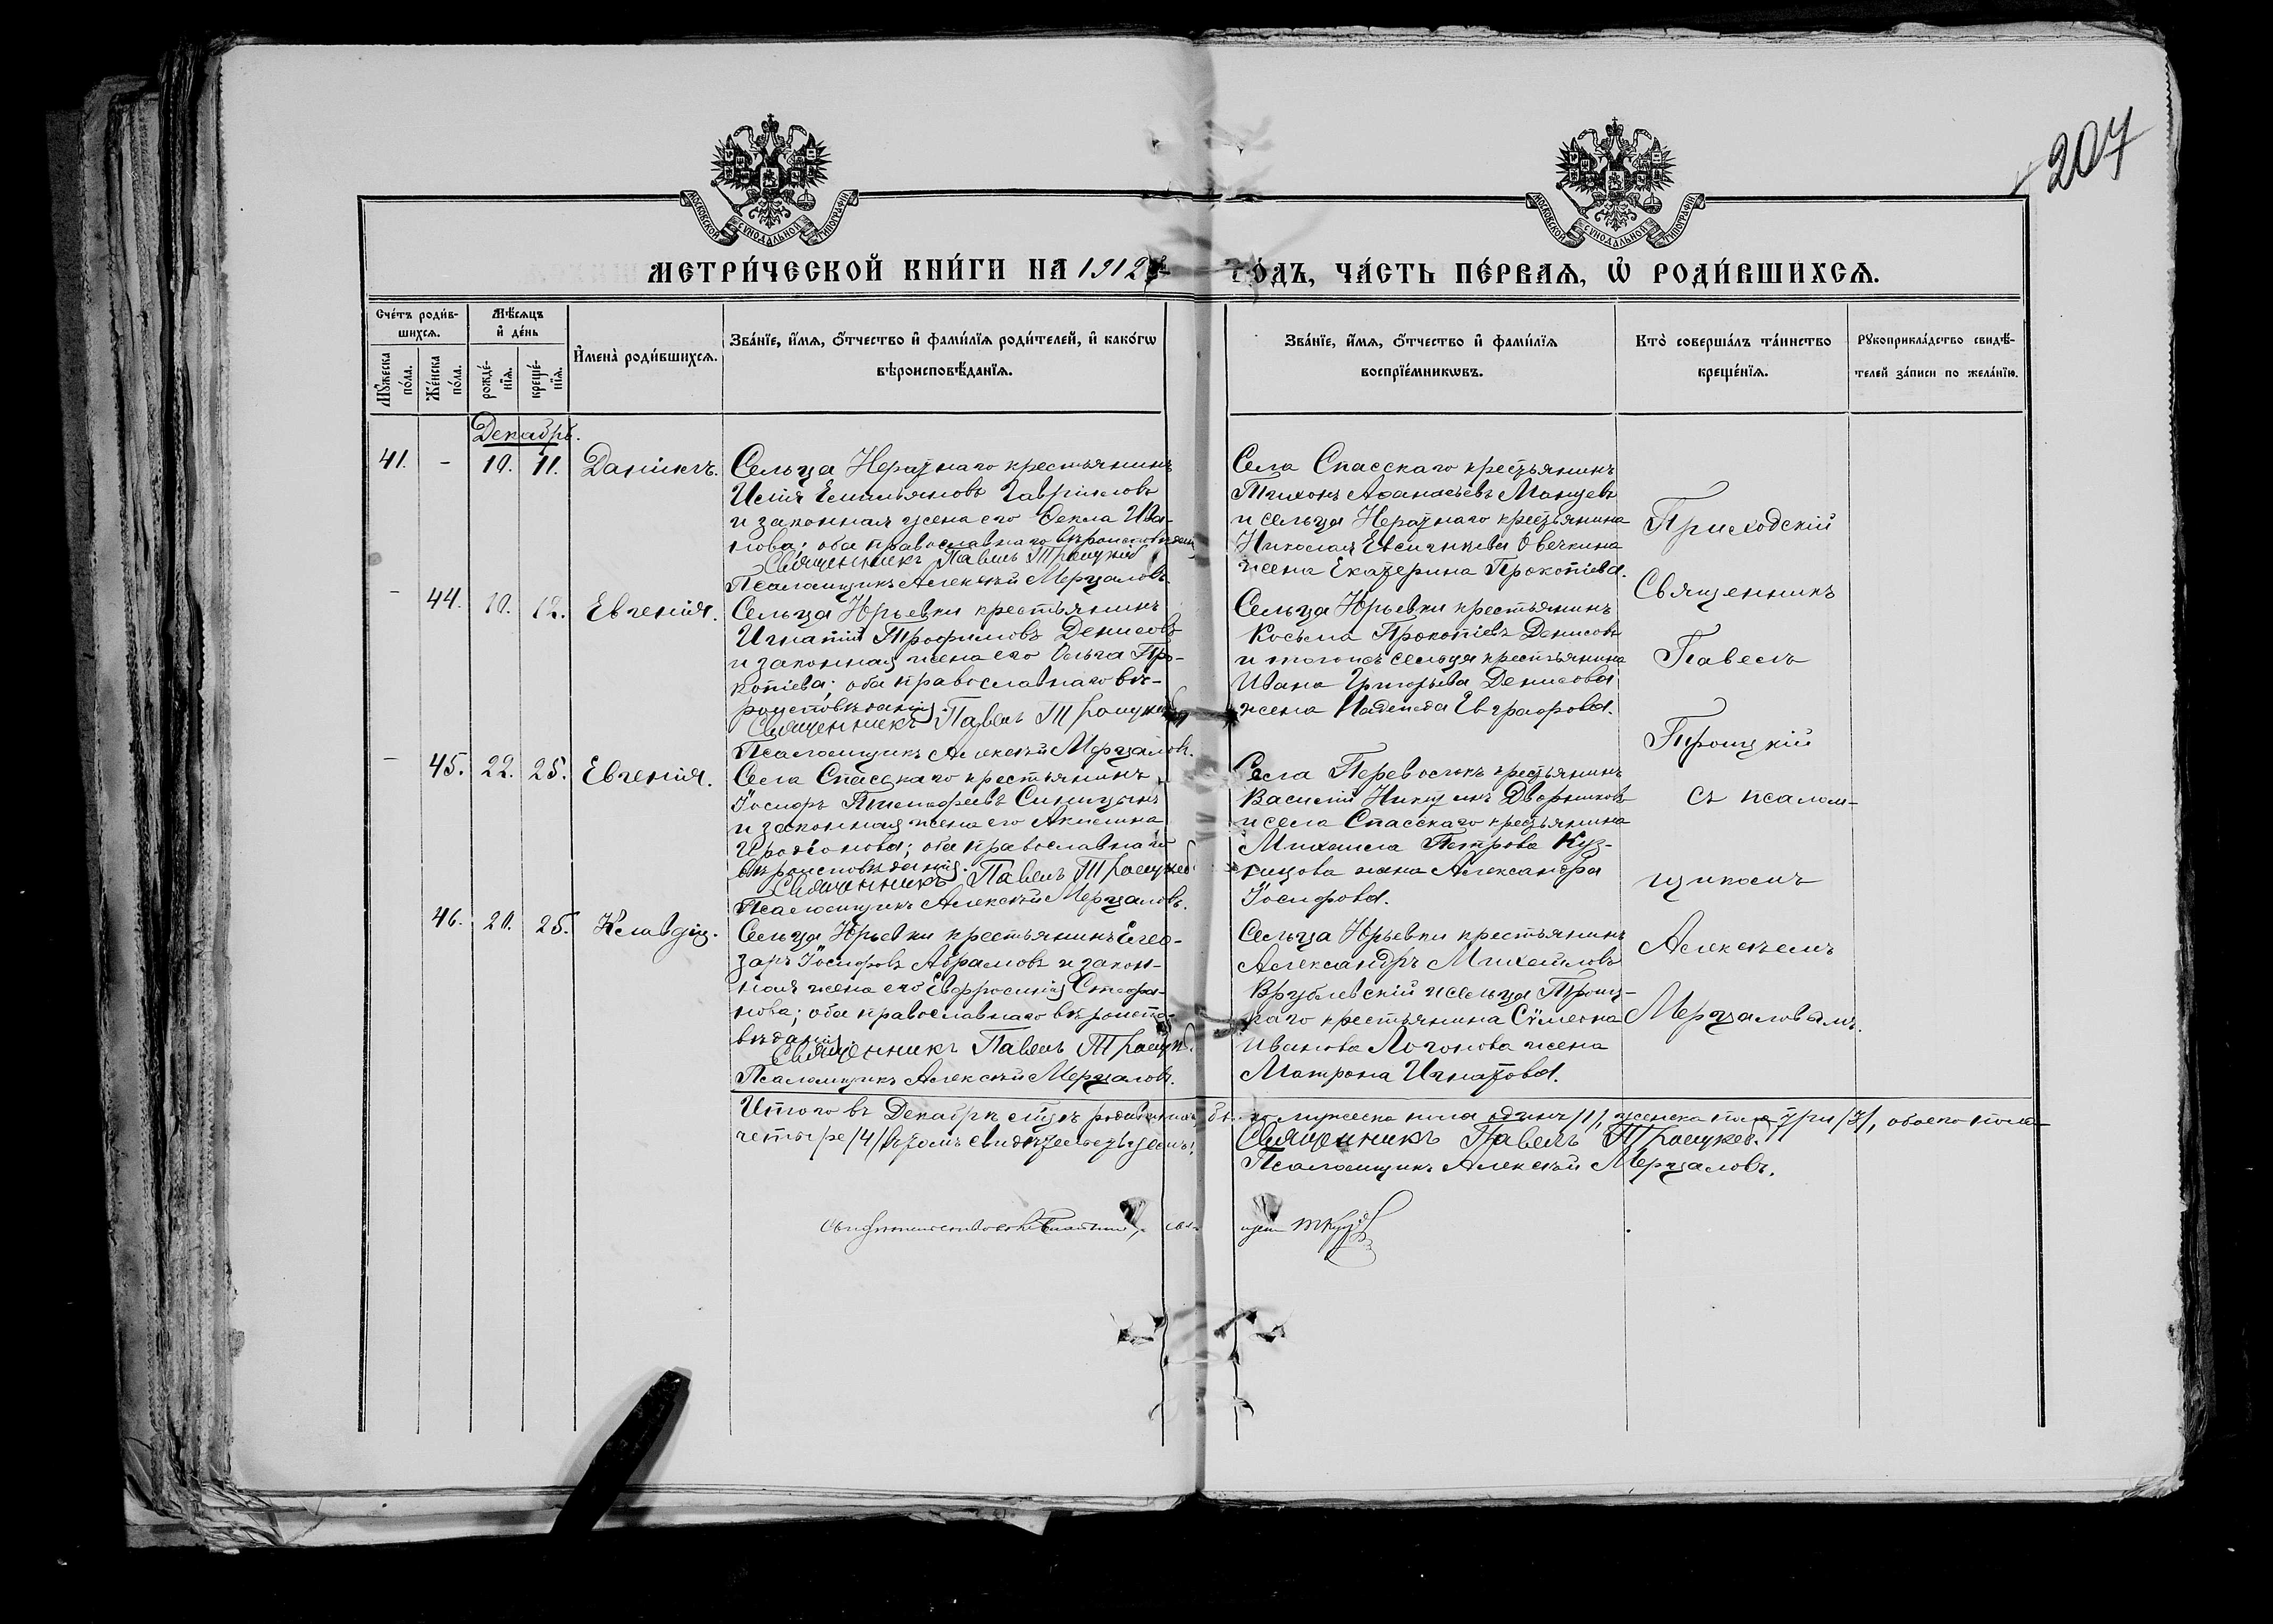 207
МОСКОВСКОЙ СѴНОДАЛЬНОЙ ТИПОГРАФІИ
МОСКОВСКОЙ СѴНОДАЛЬНОЙ ТИПОГРАФІИ
МЕТРИ́ЧЕСКОЙ КНИ́ГИ НА 1912 ГО́ДЪ, ЧА́СТЬ ПЕ́РВАЯ, Ѡ РОДИ́ВШИХСѦ.
Сче́тъ роди́вшихсѧ.
Мꙋ́жеска по́ла.
Же́нска по́ла.
Мѣ́сѧцъ и де́нь
рожде́нїѧ.
креще́нїѧ.
И҆мена̀ роди́вшихсѧ.
Зва́нїе, и҆́мѧ, ѻ҆́тчество и҆ фами́лїѧ роди́телей, и҆ како́гѡ
вѣроисповѣ́данїѧ.
Зва́нїе, и҆́мѧ, ѻ҆́тчество и҆ фами́лїѧ
воспрїе́мникѡвъ.
Кто̀ соверша́лъ та́инство
креще́нїѧ.
Рꙋкоприкла́дство свидѣ́-
телей за́писи по жела́нїю.
Декабрь.
41. - 10. 11. Даніилъ.
Сельца Нератнаго крестьянинъ
Илія Емильяновъ Гавриловъ
и законная жена его Ѳекла Ива-
нова; оба православнаго вѣроисповѣданія
Священникъ Павелъ Троицкій
Псаломщикъ Алексѣй Мерцаловъ.
Села Спасскаго крестьянинъ
Тихонъ Аѳанасьевъ Манцевъ
и сельца Нератнаго крестьянина
Николая Евсигнѣева Овечкина
жена Екатерина Прокопіева.
- 44. 10. 12. Евгенія.
Сельца Юрьевки крестьянинъ
Игнатій Трофимовъ Денисовъ
и законная жена его Ольга Про-
копіева; оба православнаго вѣ-
роисповѣданія.
Священникъ Павелъ Троицкій
Псаломщикъ Алексѣй Мерцаловъ.
Сельца Юрьевки крестьянинъ
Косьма Прокопіевъ Денисовъ
и тогожъ сельца крестьянина
Ивана Григорьева Денисова
жена Надежда Евграфова.
- 45. 22. 25. Евгенія.
Села Спасскаго крестьянинъ
Іосифъ Тимофеевъ Синицынъ
и законная жена его Акилина
Иродіонова; оба православнаго
вѣроисповѣданія.
Священникъ Павелъ Троицкій
Псаломщикъ Алексѣй Мерцаловъ.
Села Перевослокъ крестьянинъ
Василій Никитинъ Дворниковъ
и села Спасскаго крестьянина
Михаила Петрова Куз-
нецова жена Александра
Іосифова.
46. 20. 25. Клавдія.
Сельца Юрьевки крестьянинъ Елеа-
заръ Іосифовъ Абрамовъ и закон-
ная жена его Евфросинія Стефа-
нова; оба православнаго вѣроиспо-
вѣданія
Священникъ Павелъ Троицкій.
Псаломщикъ Алексѣй Мерцаловъ.
Сельца Юрьевки крестьянинъ
Александръ Михайловъ
Врублевскій и сельца Троиц-
каго крестьянина Сѵмеона
Иванова Логонова жена
Матрона Игнатова.
Приходскій
Священникъ
Павелъ
Троицкій
съ псалом-
щикомъ
Алексѣемъ
Мерцаловымъ.
Итого въ Декабрѣ м‑цѣ родившихся было мужеска пола одинъ /1/, женска пола три /3/, обоего пола
четыре /4/ въ томъ свидѣтельствуемъ:
Священникъ Павелъ Троицкій.
Псаломщикъ Алексѣй Мерцаловъ.